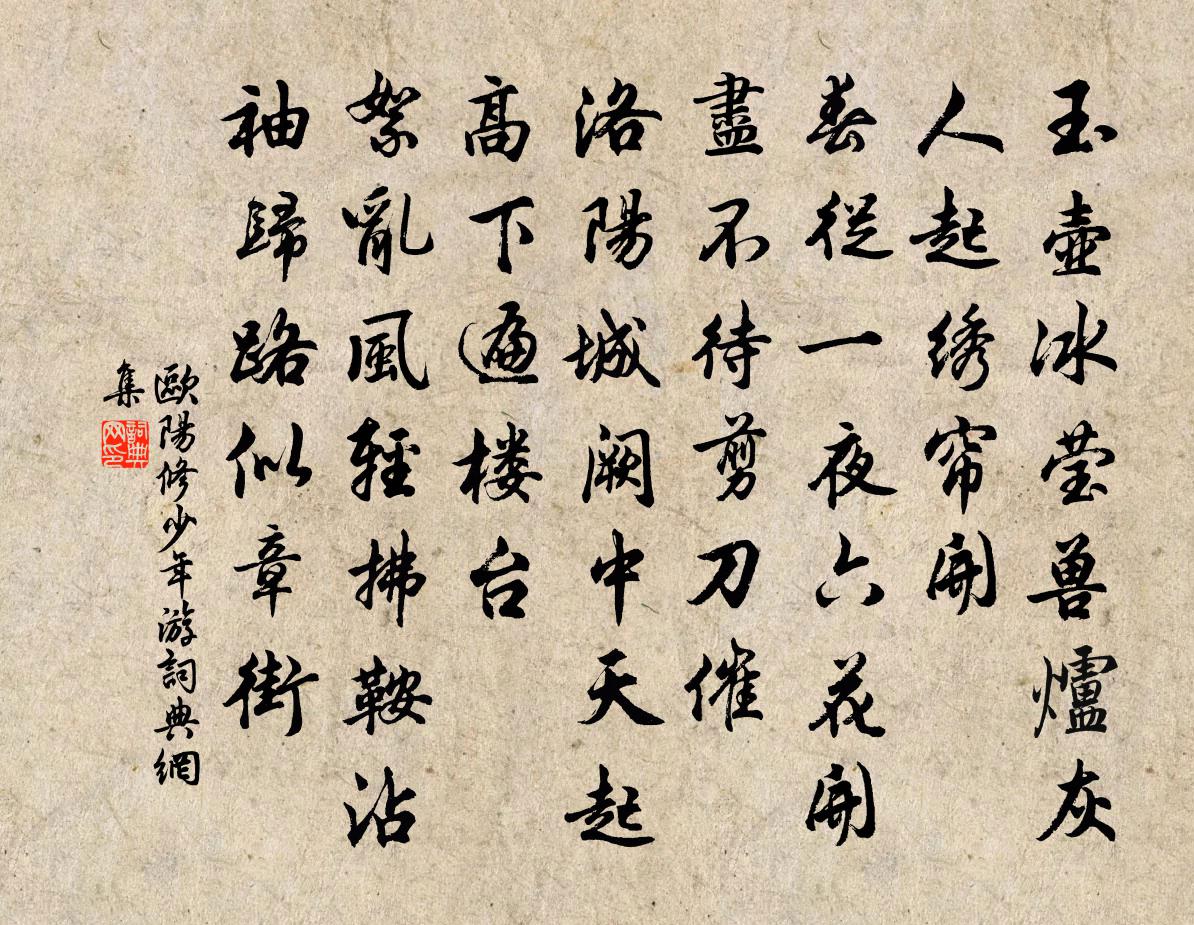 玉壺冰莹兽爐灰
人起绣帘開
春從一夜六花開
盡不待剪刀催
洛陽城阙中天起
高下遍楼台
絮亂風輕拂鞍沾
袖歸路似章街
歐陽修少年游詞典網
集
詞典
网印